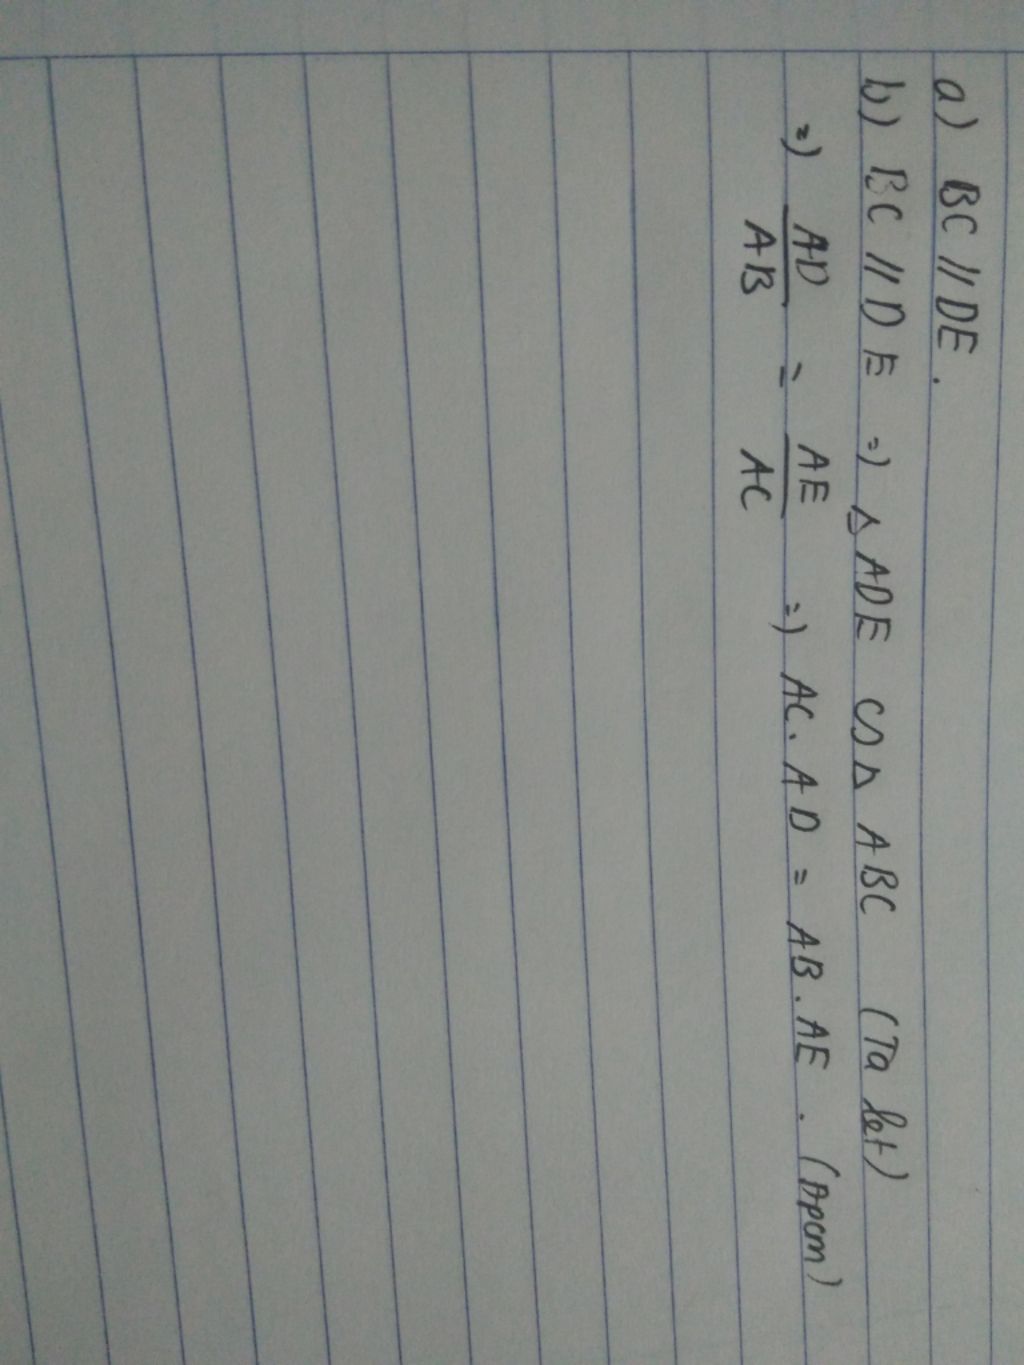 a) BC // DE.
b) BC // DE => △ADE ∽ △ABC (Ta let)
=> AD/AB = AE/AC => AC. AD = AB. AE. (Đpcm)